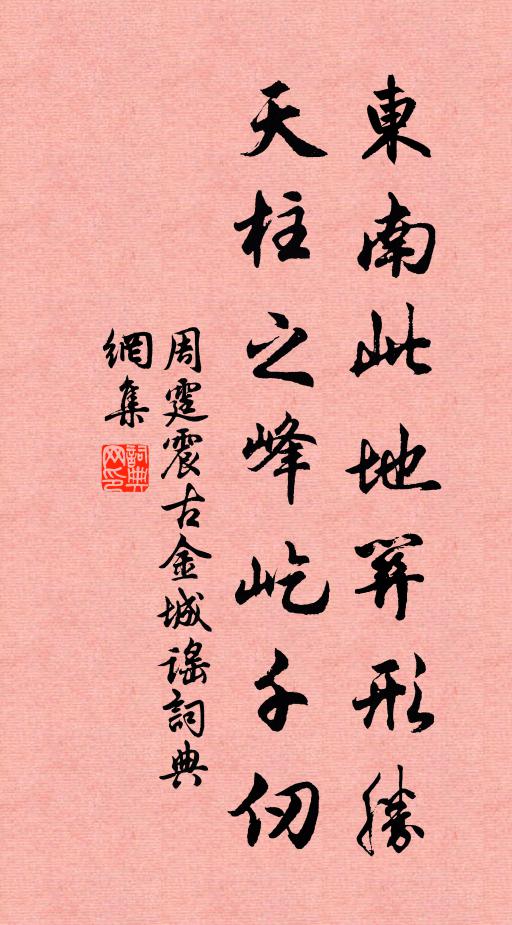 東南此地關形勝
天柱之峰屹千仞
周霆震古金城謠詞典
網集
詞典
网印